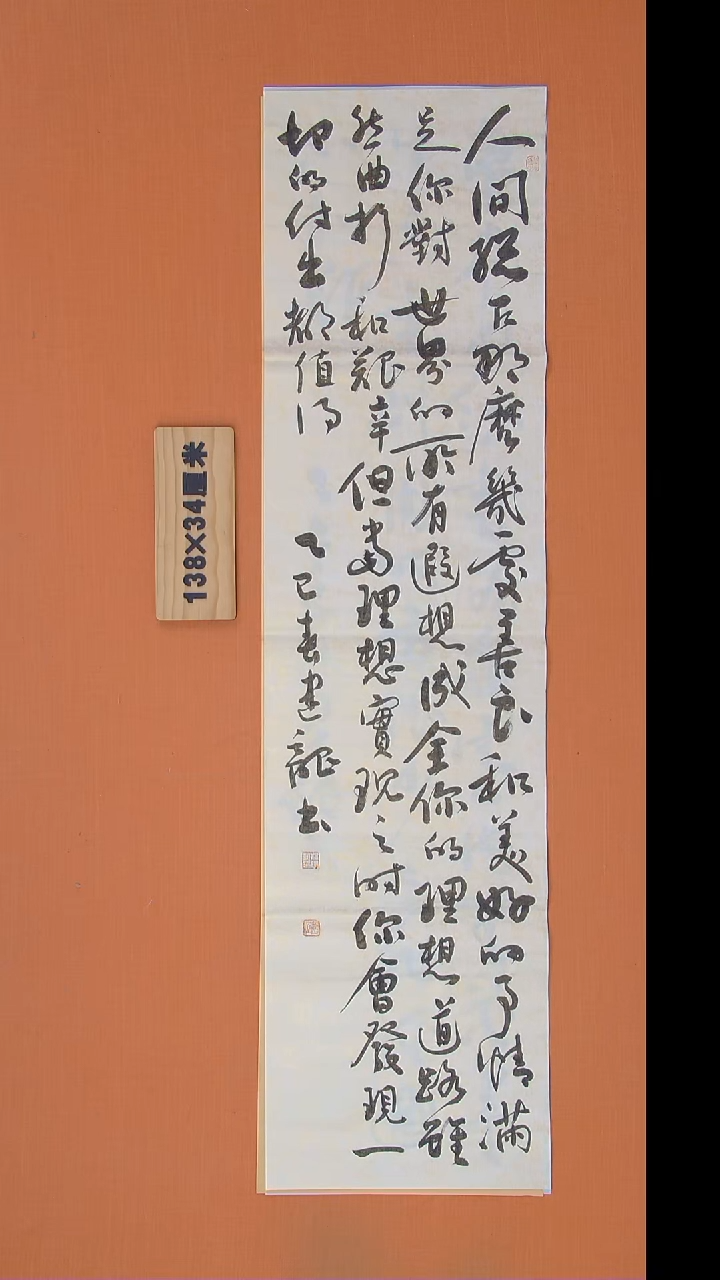 人間總有那麼幾處善良和美好的事情滿
足你對世界的所有遐想成全你的理想道路雖
然曲折和艱辛但當理想實現之時你會發現一
切的付出都值得 乙巳春建龍书
138×34厘米